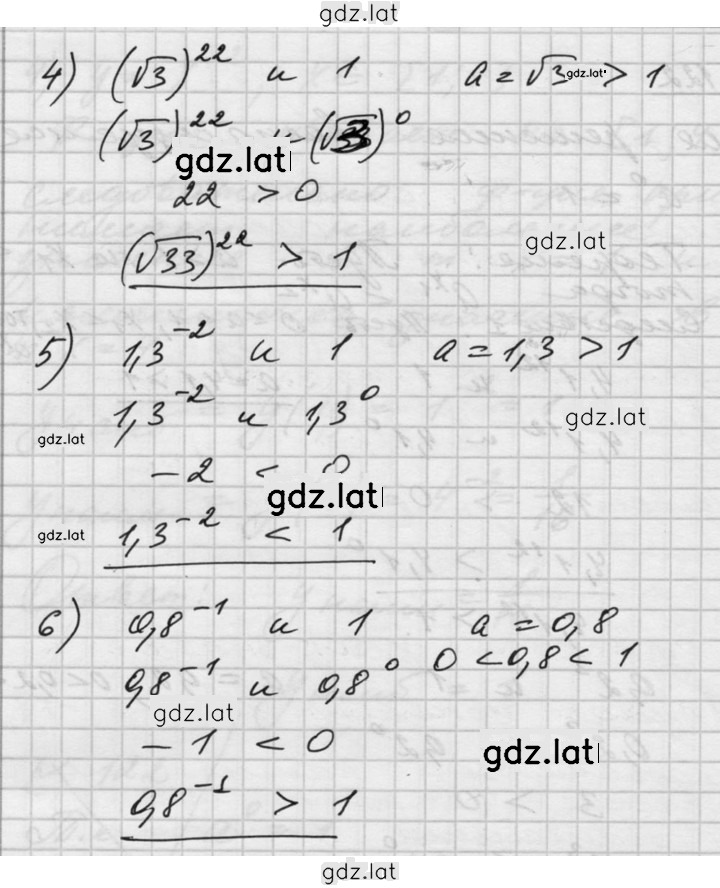 gdz.lat
4) (√3)²² и 1 a = √3 > 1
gdz.lat
(√3)²² и (√3)⁰
gdz.lat
22 > 0
gdz.lat
(√33)²² > 1
5) 1,3⁻² и 1 a = 1,3 > 1
1,3⁻² и 1,3⁰
gdz.lat
gdz.lat
-2 < 0
gdz.lat
gdz.lat
1,3⁻² < 1
6) 0,8⁻¹ и 1 a = 0,8
0,8⁻¹ и 0,8⁰ 0 < 0,8 < 1
gdz.lat
-1 < 0
gdz.lat
0,8⁻¹ > 1
gdz.lat